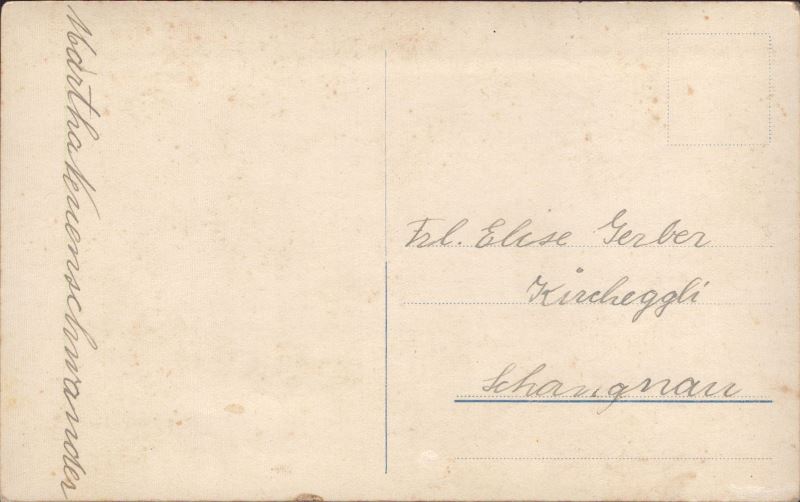 Martha Neuenschwander
Frl. Elise Gerber
Kircheggli
Schangnau